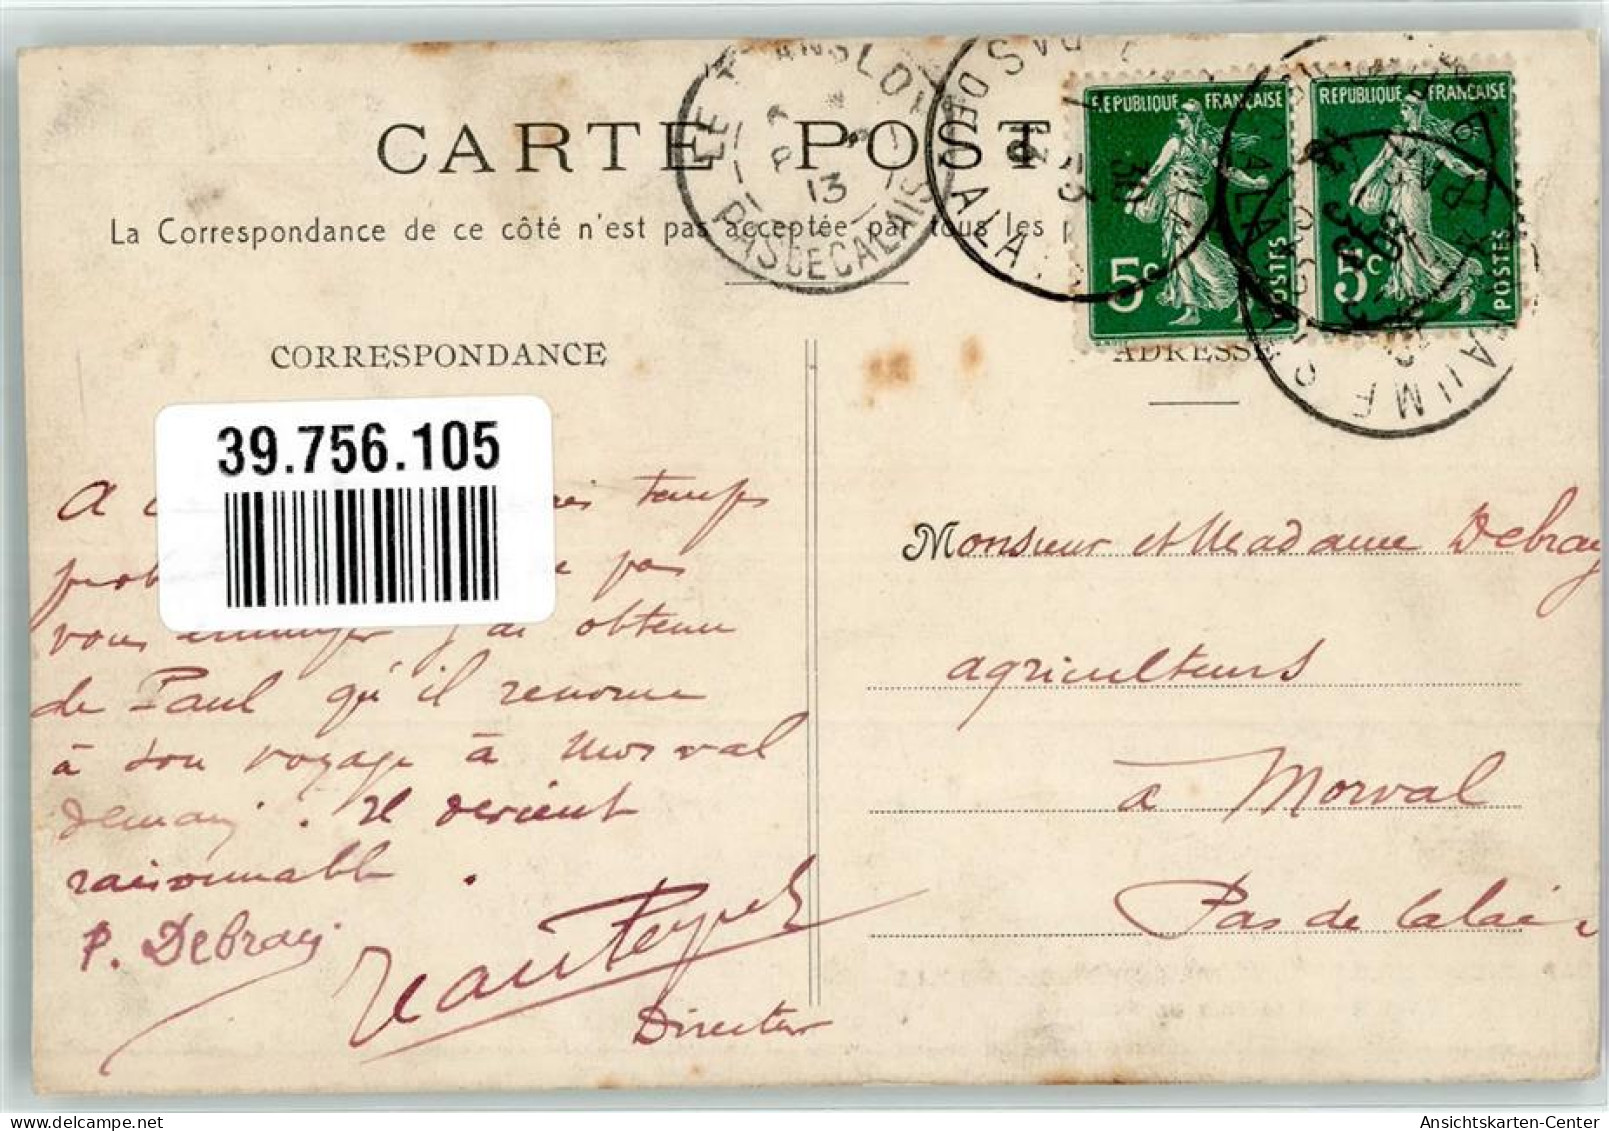 CARTE POST
La Correspondance de ce côté n'est pas acceptée par tous les
CORRESPONDANCE
ADRESSE
REPUBLIQUE FRANÇAISE
5c
POSTES
REPUBLIQUE FRANÇAISE
5c
POSTES
13
PAS DE CALAIS
39.756.105
A temps
pas
vous j'ai obtenu
de Paul qu'il renonce
à son voyage à Morval
demain. Il devient
raisonnable.
P. Debray
Directeur
Monsieur et Madame Debray
agriculteurs
à Morval
Pas de Calais
Ansichtskarten-Center